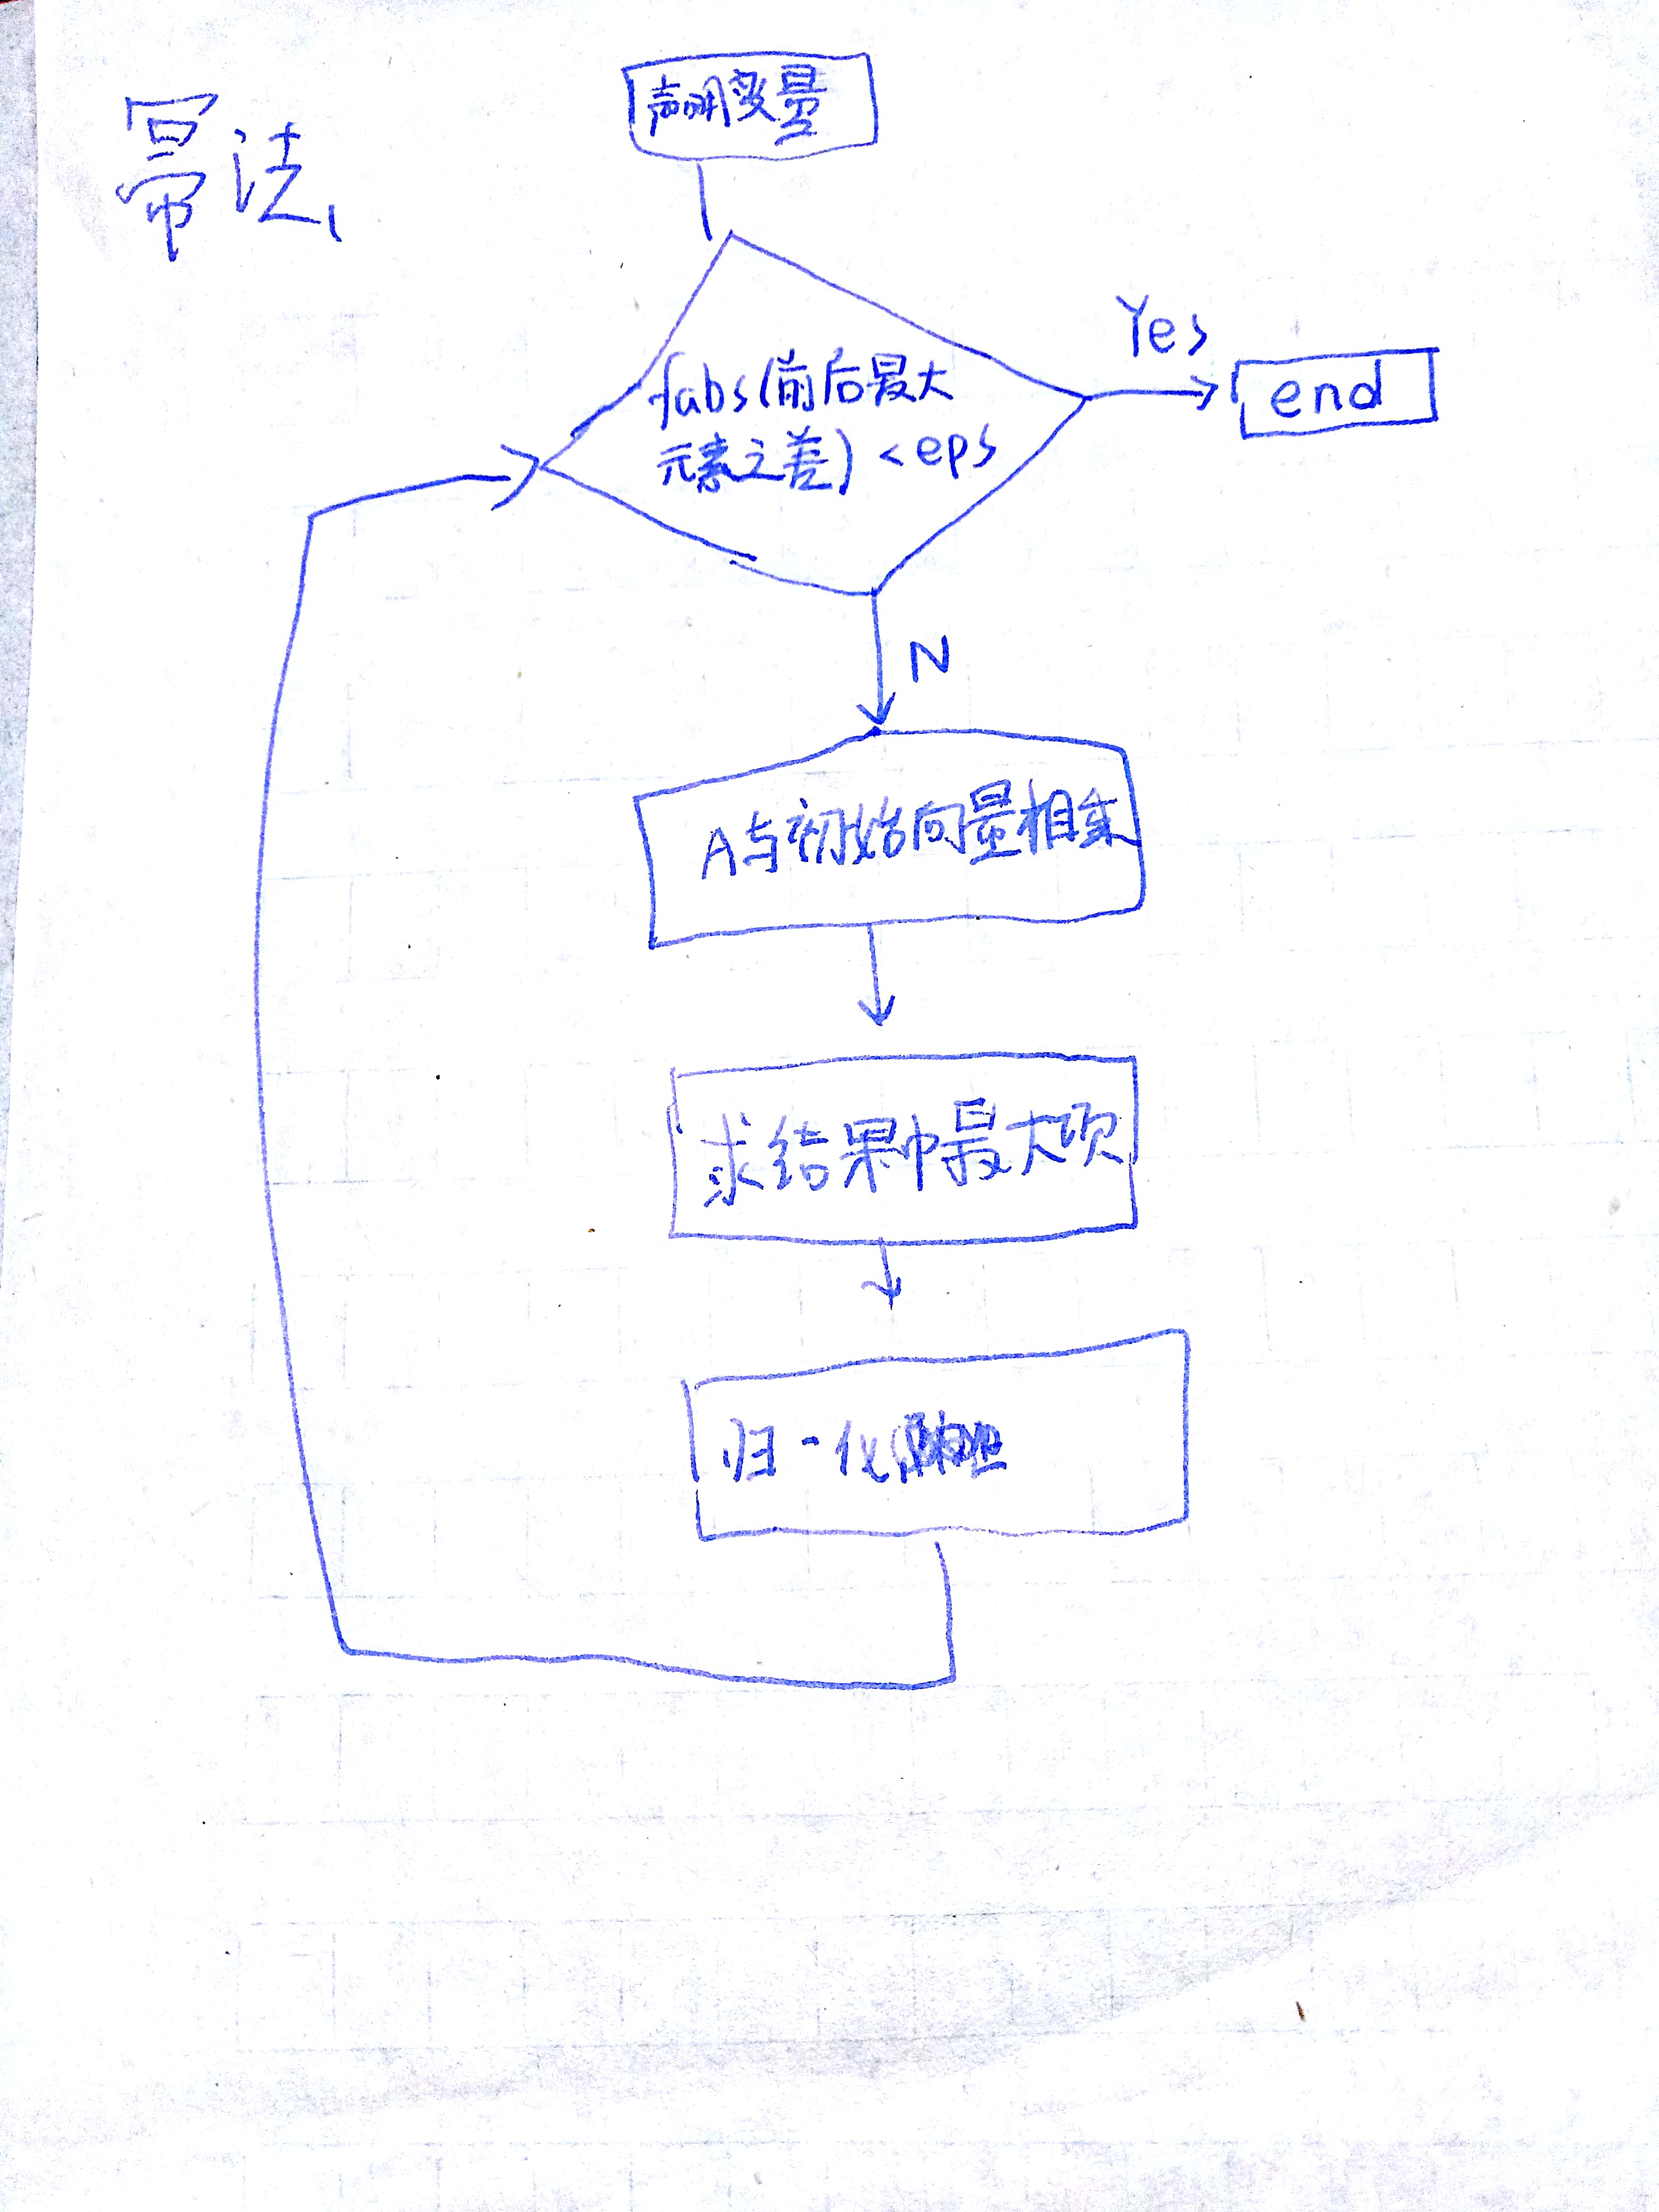 幂法
声明变量
fabs(前后最大
元素之差)<eps
Yes
end
N
A与初始向量相乘
求结果中最大项
归一化